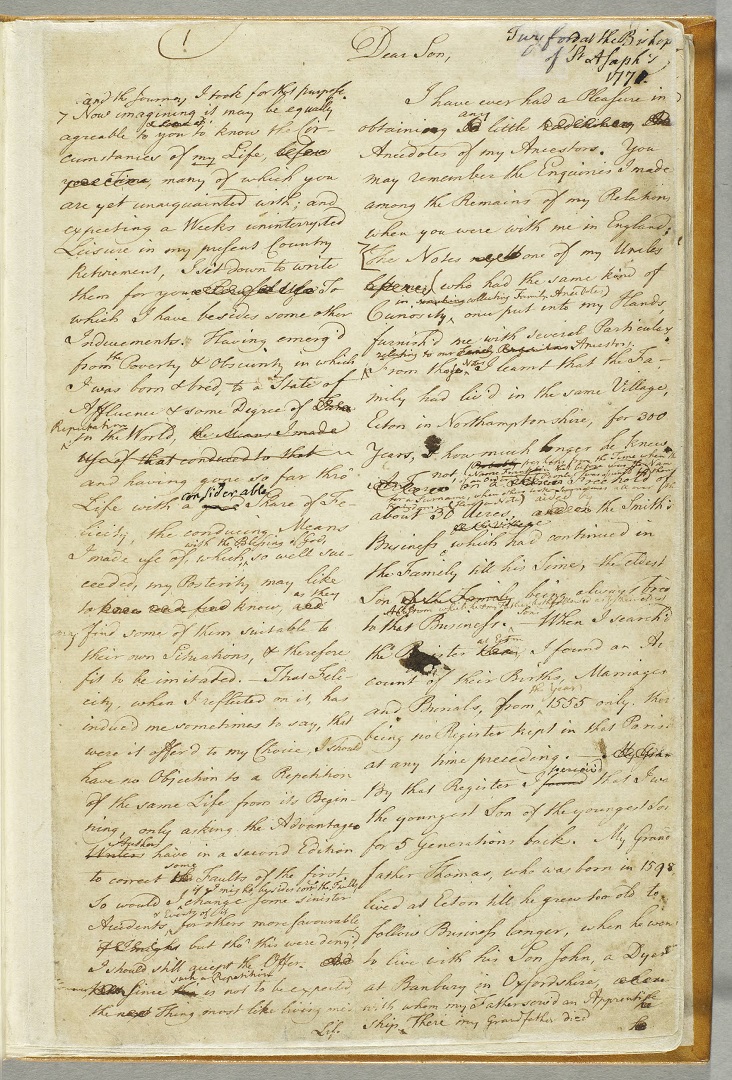 1
Dear Son,
Twyford at the Bishop
of St Asaph's
1771.
I have ever had a Pleasure in
any
obtaining little
Anecdotes of my Ancestors. You
may remember the Enquiries I made
among the Remains of my Relations
when you were with me in England;
The Notes one of my Uncles
(who had the same kind of
in collecting Family Anecdotes)
Curiosity once put into my Hands,
furnish'd me with several Particulars
relating to our Ancestors.
Notes
From these I learnt that the Fa-
mily had liv'd in the same Village,
Ecton in Northamptonshire, for 300
Years, & how much longer he knew
not
on a Freehold of
about 30 Acres, the Smith's
Business which had continued in
the Family till his Time, the eldest
Son being always bred
to that Business. When I search'd
the Register at Ecton I found an Ac-
count of their Births, Marriages
and Burials, from the Year 1555 only, there
being no Register kept in that Parish
at any time preceding.
By that Register I perceived that I was
the youngest Son of the youngest Son
for 5 Generations back. My Grand-
father Thomas, who was born in 1598
lived at Ecton till he grew too old to
follow Business longer, when he went
to live with his Son John, a Dyer
at Banbury in Oxfordshire,
with whom my Father serv'd an Apprentice
ship. There my Grandfather died
and the Journey I took for this purpose.
Now imagining it may be equally
agreable to you to know the Cir-
cumstances of my Life, before
your Time, many of which you
are yet unacquainted with; and
expecting a Weeks uninterrupted
Leisure in my present Country
Retirement, I sit down to write
them for you To
which I have besides some other
Inducements. Having emerg'd
from the Poverty & Obscurity in which
I was born & bred, to a State of
Affluence & some Degree of
Reputation
in the World, the Means I made
use of that conduced to that
and having gone so far thro'
considerable
Life with a Share of Fe-
licity, the conducing Means
with the Blessing of God,
I made use of, which, so well suc-
ceeded, my Posterity may like
as they
to know,
find some of them suitable to
their own Situations, & therefore
fit to be imitated. — That Feli-
city, when I reflected on it, has
induced me sometimes to say, that
were it offer'd to my Choice, I should
have no Objection to a Repetition
of the same Life from its Begin-
ning, only asking the Advantage
Authors
Writers have in a second Edition
some
to correct the Faults of the first.
if I might, besides corr the Faults,
So would I change some sinister
& Events of it
Accidents for others more favourable
but tho' this were deny'd
I should still accept the Offer.
such a Repetition
since is not to be expected
the next Thing most like living me
Life